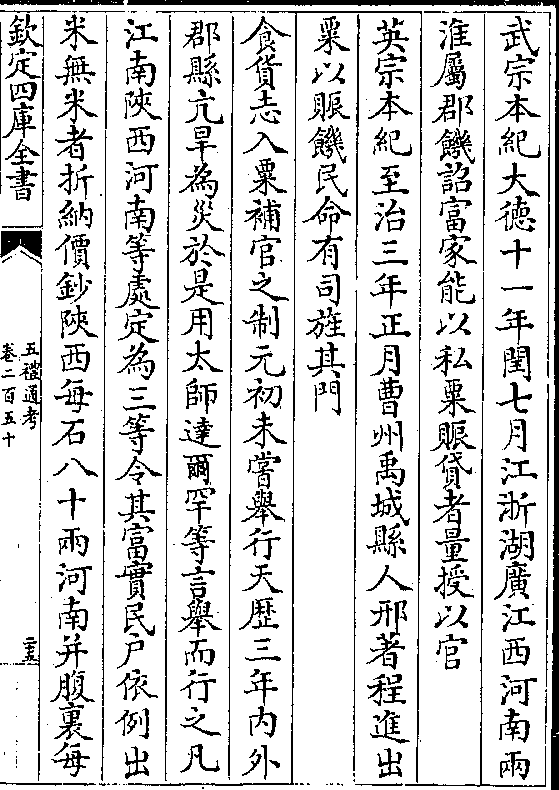 武宗本紀大德十一年閏七月江浙湖廣江西河南兩
淮屬郡饑詔富家能以私粟賑貸者量授以官
英宗本紀至治三年正月曹州禹城縣人邢著程進出
粟以賑饑民命有司旌其門
食貨志入粟補官之制元初未嘗舉行天歴三年内外
郡縣亢旱為災於是用太師達爾罕等言舉而行之凡
江南陜西河南等處定為三等令其富實民戶依例出
米無米者折納價鈔陜西每石八十兩河南并腹裏每
欽定四庫全書
五禮通考
卷二百五十
二五